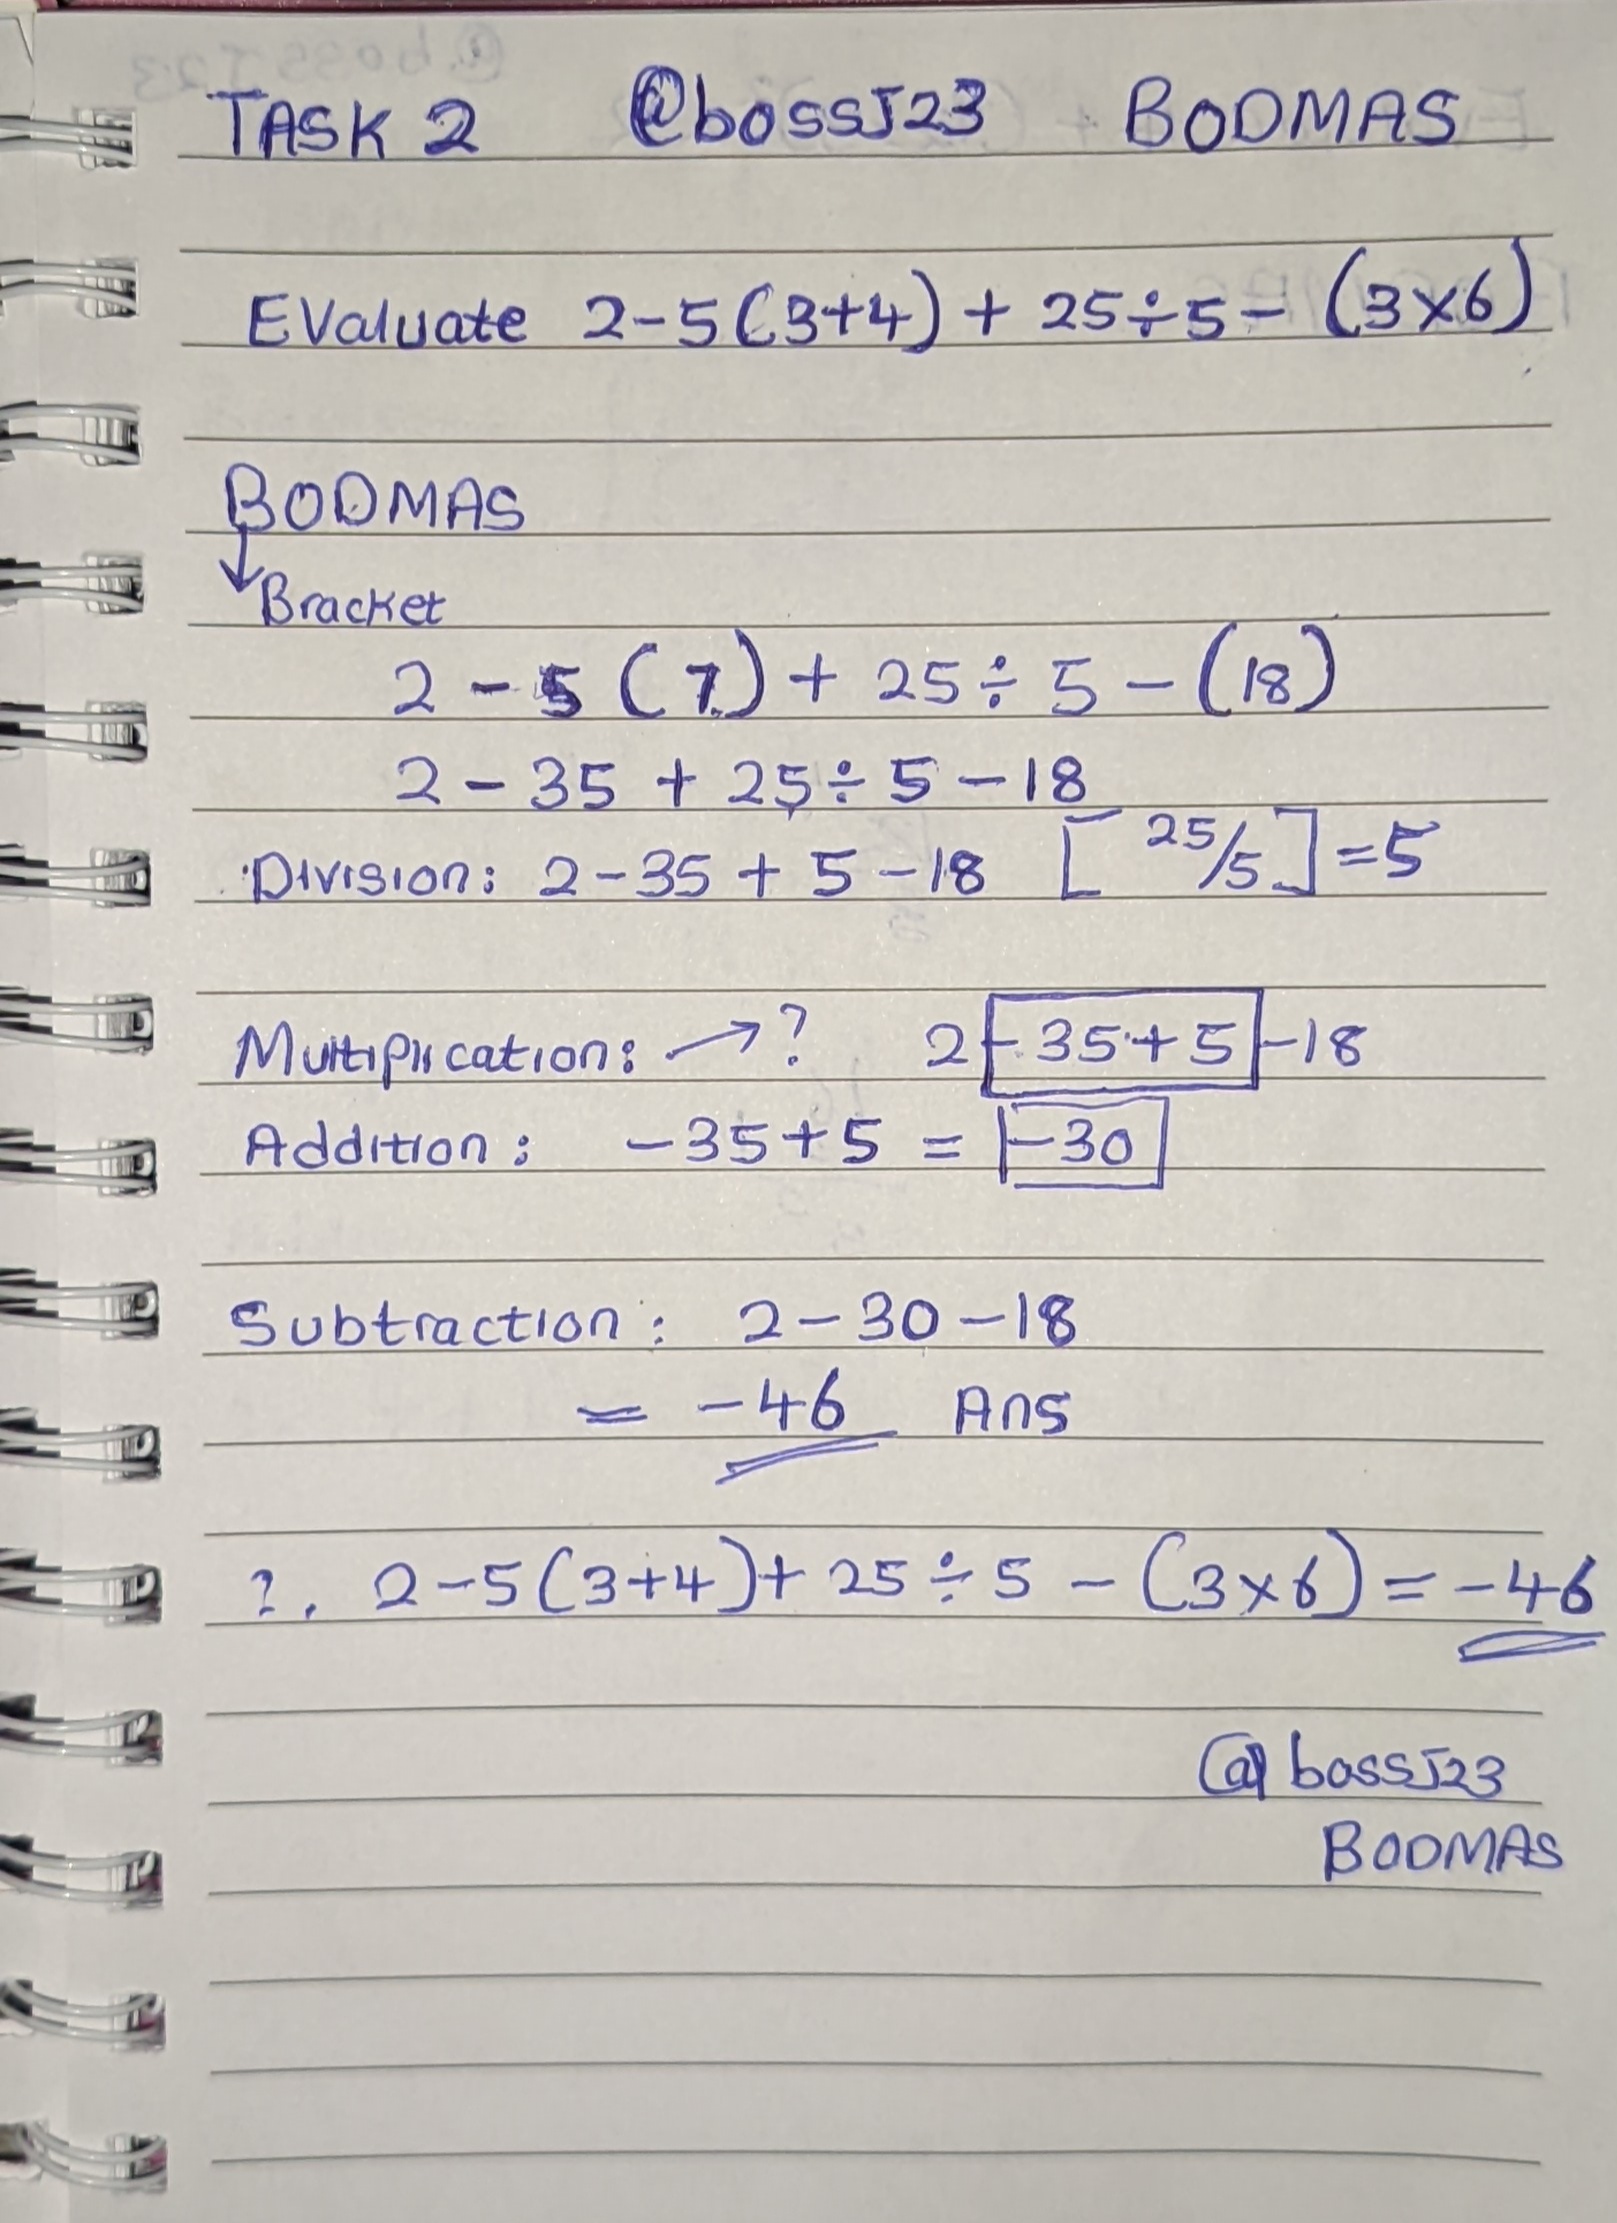 TASK 2 @bossJ23 BODMAS
Evaluate 2-5(3+4) + 25÷5- (3×6)
BODMAS
↓
Bracket
2 - 5 (7) + 25 ÷ 5 - (18)
2 - 35 + 25 ÷ 5 - 18
Division: 2-35 + 5-18 [25/5] = 5
Multiplication: → ? 2 -35+5 -18
Addition: -35+5 = -30
Subtraction: 2-30-18
= -46 Ans
?. 2-5(3+4)+ 25 ÷ 5 - (3×6) = -46
@bossJ23
BODMAS